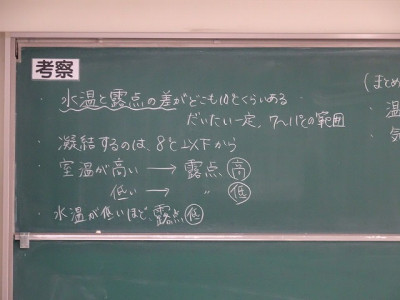 考察
・水温と露点の差がどこも10℃くらいある
だいたい一定、7〜11℃の範囲
・凝結するのは、8℃以下から
・室温が高い → 露点 高
低い → 〃 低
・水温が低いほど、露点 低
(まとめ
・温
・気